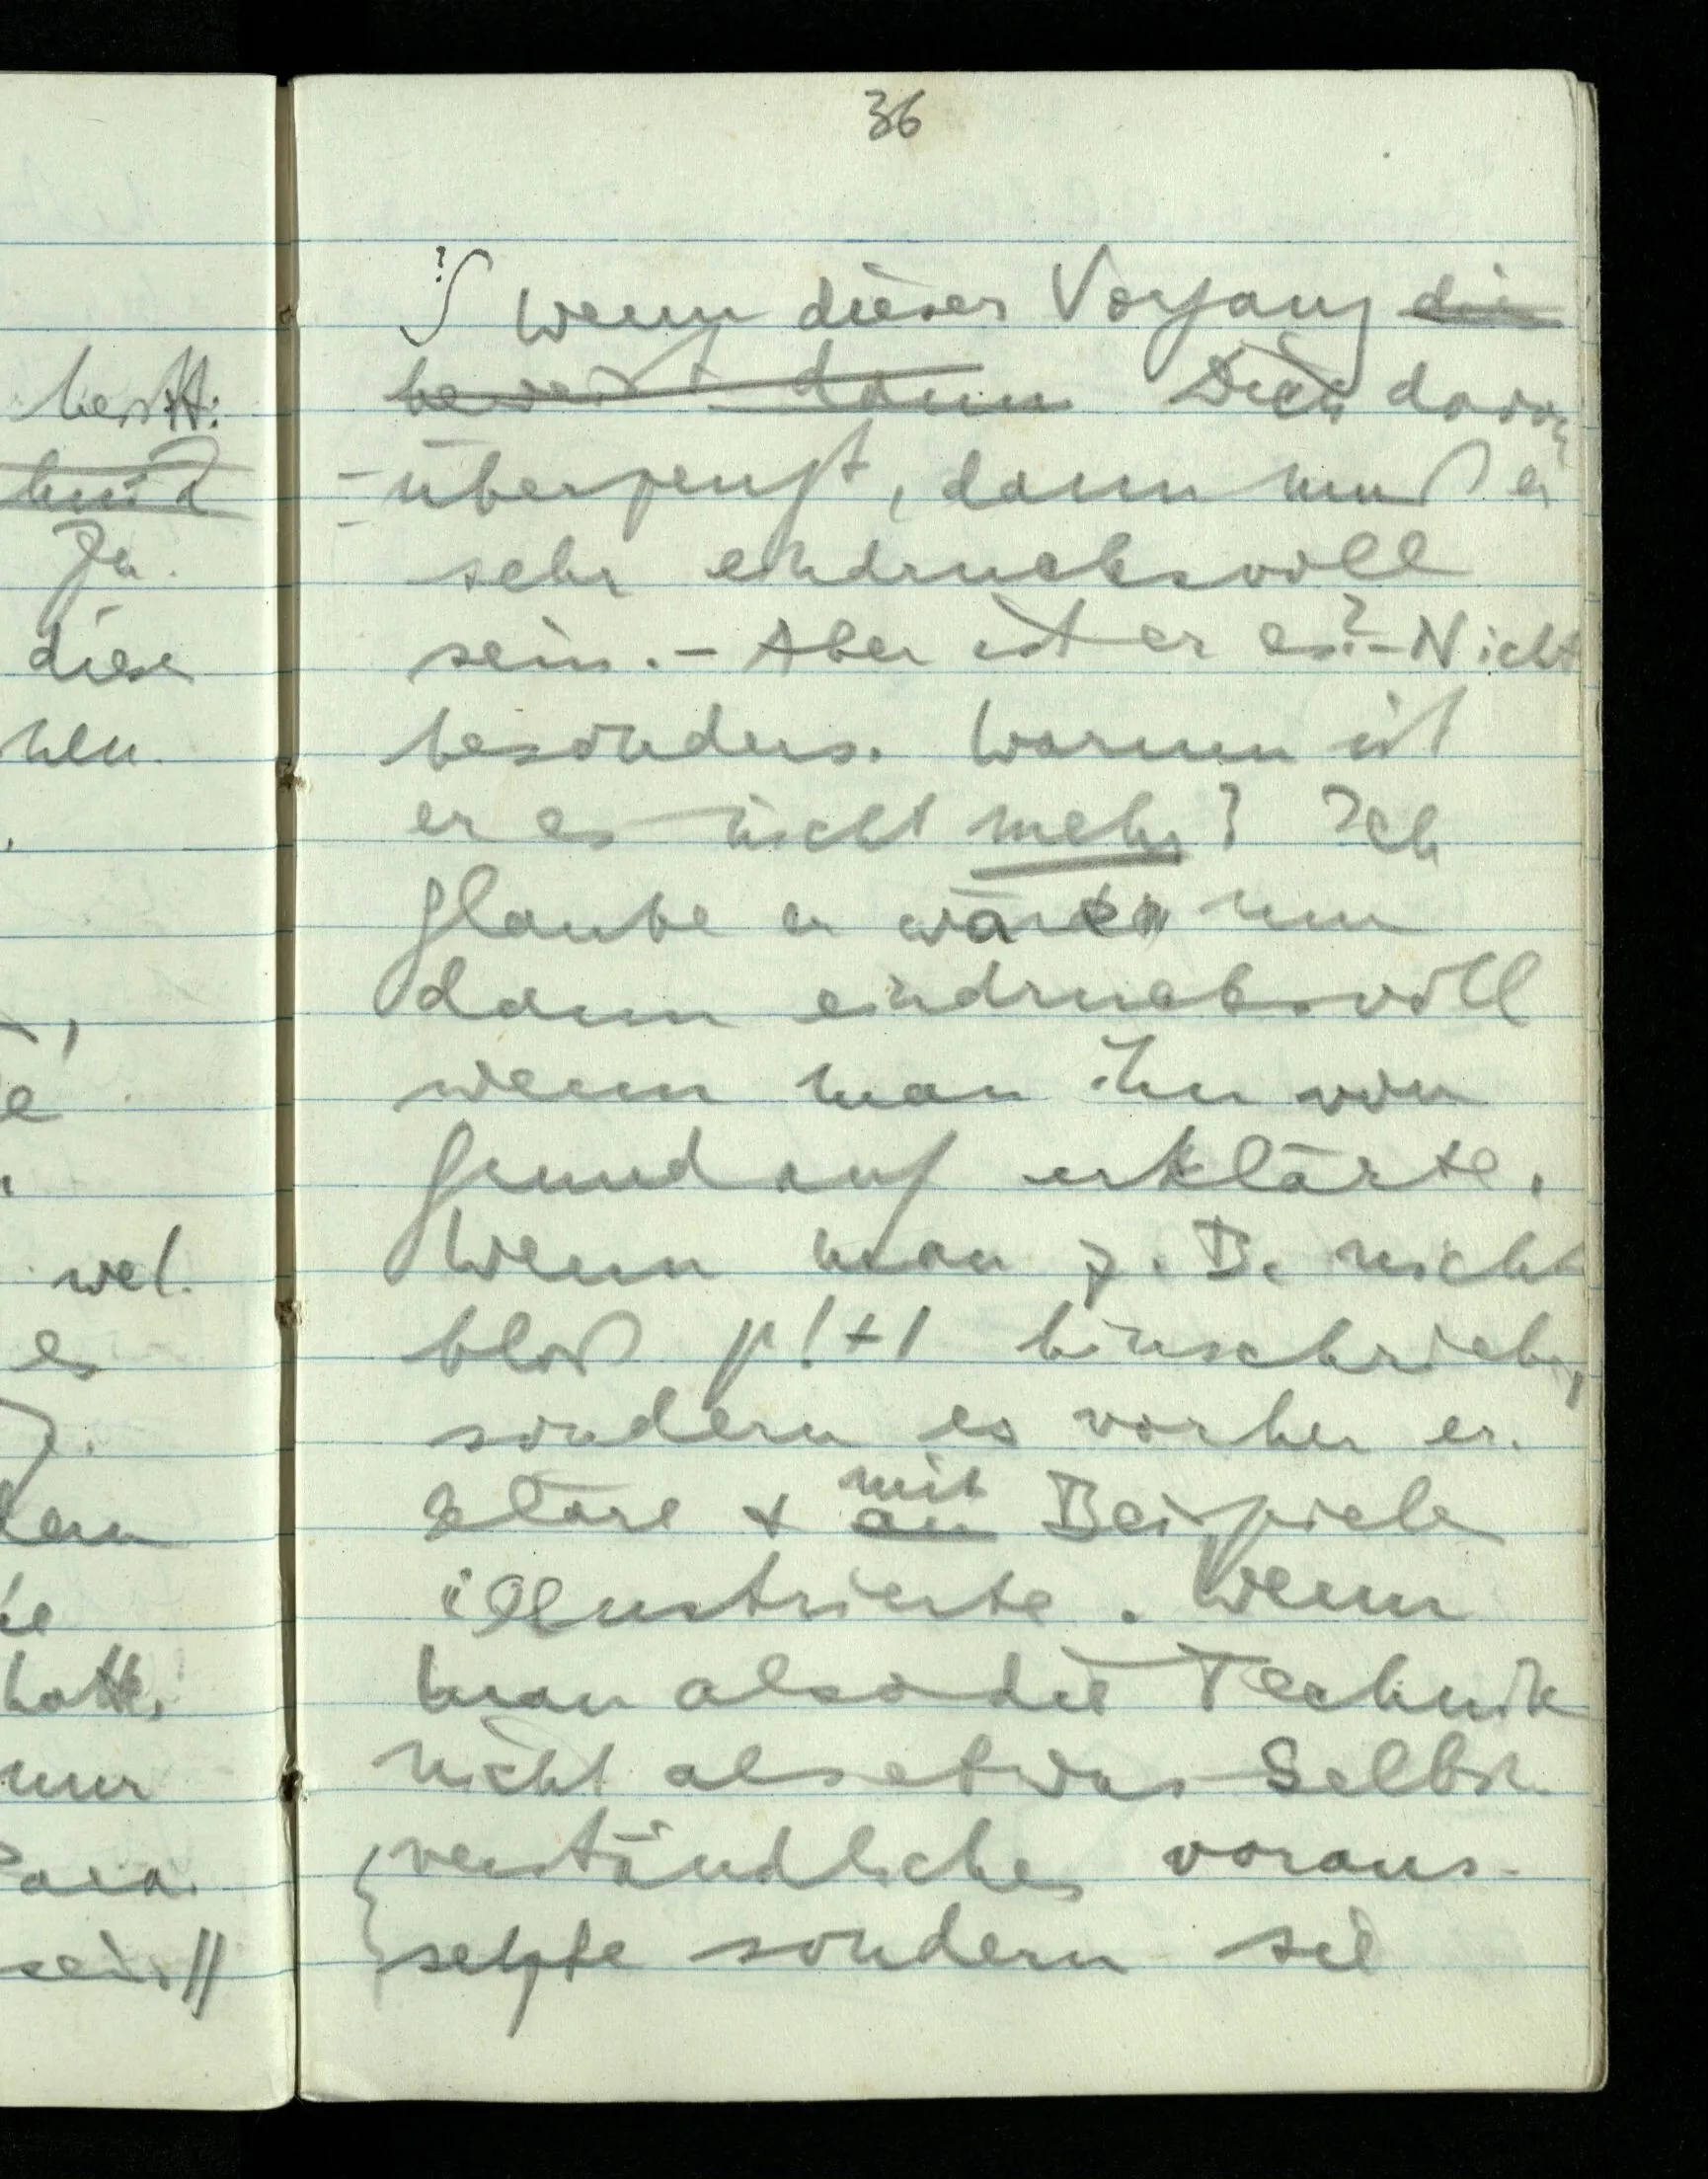 36
hestt:
Ja.
diese
wel.
es
hatte,
nur
sein //
? ∫ Wenn dieser Vorgang die
beweist dann Dich davon
überzeugt, dann muß er
sehr eindrucksvoll
sein. – Aber ist er es? – Nicht
besonders. Warum ist
er es nicht mehr? Ich
glaube er wäre nur
dann eindrucksvoll
wenn man ihn von
Grund auf erklärte.
Wenn man z. B. nicht
bloß p!+1 hinschriebe,
sondern es vorher er-
mit
kläre & an Beispiele
illustrierte. Wenn
man also die Technik
nicht als etwas Selbst-
verständliches voraus-
setzte sondern sie